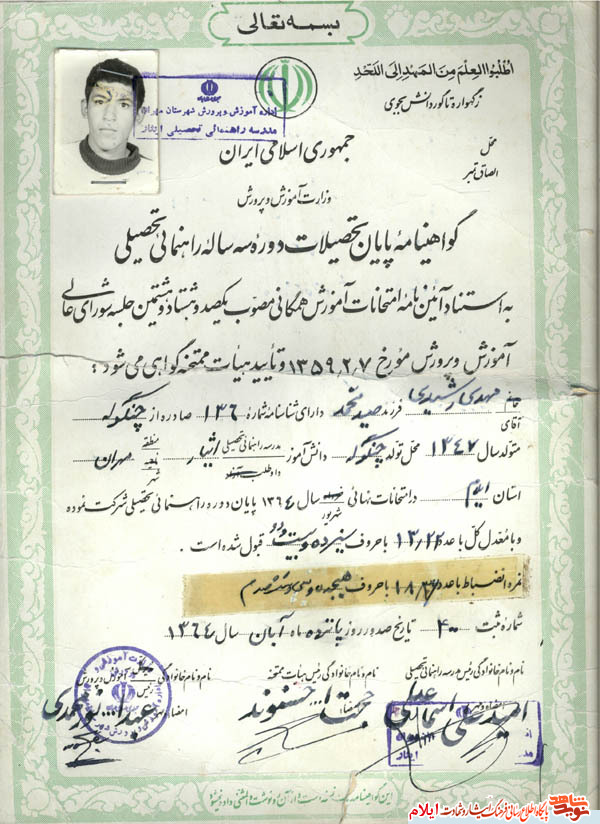 بسمه تعالی
اطلبوا العلم من المهد الی اللحد
زگهواره تا گور دانش بجوی
محل
الصاق تمبر
اداره آموزش و پرورش شهرستان مهران
مدرسه راهنمائی تحصیلی ایثار
جمهوری اسلامی ایران
وزارت آموزش و پرورش
گواهینامهٔ پایان تحصیلات دورهٔ سه سالهٔ راهنمائی تحصیلی
به استناد آئین نامهٔ امتحانات آموزش همگانی مصوب یکصد و هشتاد و هشتمین جلسه شورای عالی
آموزش و پرورش مورخ ۱۳۵۹،۲،۷ و تأیید هیأت ممتحنه گواهی می شود:
آقای مهدی رشیدی فرزند صید محمد دارای شناسنامه شماره ۱۳۶ صادره از چنگوله
متولد سال ۱۳۴۷ محل تولد چنگوله دانش آموز داوطلب آزاد مدرسه راهنمائی تحصیلی ایثار منطقه ناحیه شهر مهران
استان ایلام در امتحانات نهائی خرداد شهریور سال ۱۳۶۴ پایان دوره راهنمائی تحصیلی شرکت نموده
و با معدل کل با عدد ۱۳/۲۲ با حروف سیزده و بیست و دو قبول شده است.
نمره انضباط با عدد با حروف هیجده و سی و صدم
شماره ثبت ۴۰۰ تاریخ صدور روز پانزده ماه آبان سال ۱۳۶۴
نام و نام خانوادگی رئیس مدرسه راهنمائی تحصیلی
امید علی اسماعیلی
نام و نام خانوادگی رئیس هیأت ممتحنه
حجت ا... حسنوند
نام و نام خانوادگی رئیس آموزش و پرورش
عبدا... نورمحمدی
نوید شاهد
پایگاه اطلاع رسانی فرهنگ ایثار و شهادت ایلام